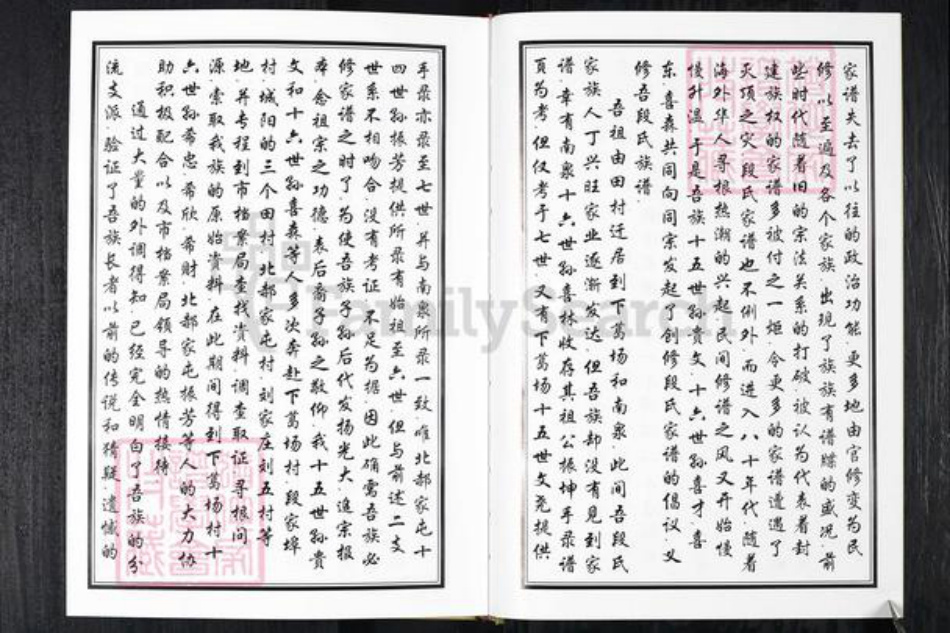 家谱失去了以往的政治功能.更多地由官修变为民
修.以至遍及各个家族.出现了族族有谱牒的盛况.前
些时代随着旧的宗法关系的打破.被认为代表着封
建族权的家谱多被付之一炬.令更多的家谱遭遇了
灭顶之灾.段氏家谱也不例外.而进入八十年代.随着
海外华人寻根热潮的兴起.民间修谱之风又开始慢
慢升温.于是吾族十五世孙贵文.十六世孙喜才.喜
东.喜森共同向同宗发起了创修段氏家谱的倡议.义
修吾段氏族谱.
吾祖由田村迁居到下葛场和南泉.此间吾段氏
家族人丁兴旺.家业逐渐发达.但吾族却没有见到家
谱.幸有南泉十六世孙喜林收存其祖公振坤手录谱
页为考.但仅考于七世.又有下葛场十五世文尧提供
手录亦录至七世.并与南泉所录一致.唯北部家屯十
四世孙振芳提供所录有始祖至六世.但与前述二支
世系不相吻合.没有考证.不足为据.因此确需吾族必
修家谱之时了.为使吾族子孙后代发扬光大.追宗报
本.念祖宗之功德.表后裔子孙之敬仰.我十五世孙贵
文和十六世孙喜森等人多次奔赴下葛场村.段家埠
村.城阳的三个田村.北部家屯村.刘家庄刘五村等
地.并专程到市档案局查找资料.调查取证.寻根间
源.索取我族的原始资料.在此期间得到下葛场村十
六世孙希忠.希欣.希财.北部家屯振芳等人的大力协
助积极配合以及市档案局领导的热情接待.
通过大量的外调得知.已经完全明白了吾族的分
流支派.验证了吾族长者以前的传说和猜疑.遗憾的
FamilySearch